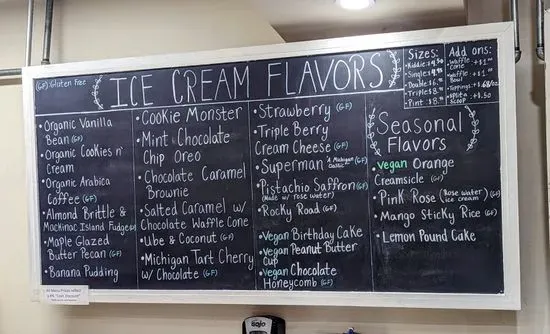 (GF) Gluten Free
ICE CREAM FLAVORS
Sizes:
• Kiddie:
• Single:
• Double:
• Triple:
• Pint :
Add ons:
• Waffle Cone +$1.00
• Waffle Bowl +$1.00
• Toppings:
• Split a Scoop +$1.50
• Organic Vanilla
Bean (GF)
• Organic Cookies n'
Cream
• Organic Arabica
Coffee (GF)
• Almond Brittle &
Mackinac Island Fudge (GF)
• Maple Glazed
Butter Pecan (GF)
• Banana Pudding
• Cookie Monster
• Mint Chocolate
Chip Oreo
• Chocolate Caramel
Brownie
• Salted Caramel w/
Chocolate Waffle Cone
• Ube & Coconut (GF)
• Michigan Tart Cherry
w/ Chocolate (GF)
• Strawberry (GF)
• Triple Berry
Cream Cheese (GF)
• Superman "A Michigan Classic" (GF)
• Pistachio Saffron (GF)
(Made w/ rose water)
• Rocky Road (GF)
• Vegan Birthday Cake
• Vegan Peanut Butter
Cup
• Vegan Chocolate
Honeycomb (GF)
Seasonal
Flavors
• Vegan Orange
Creamsicle (GF)
• Pink Rose (Rose water ice cream) (GF)
• Mango Sticky Rice (GF)
• Lemon Pound Cake
All Menu Prices reflect
GOJO